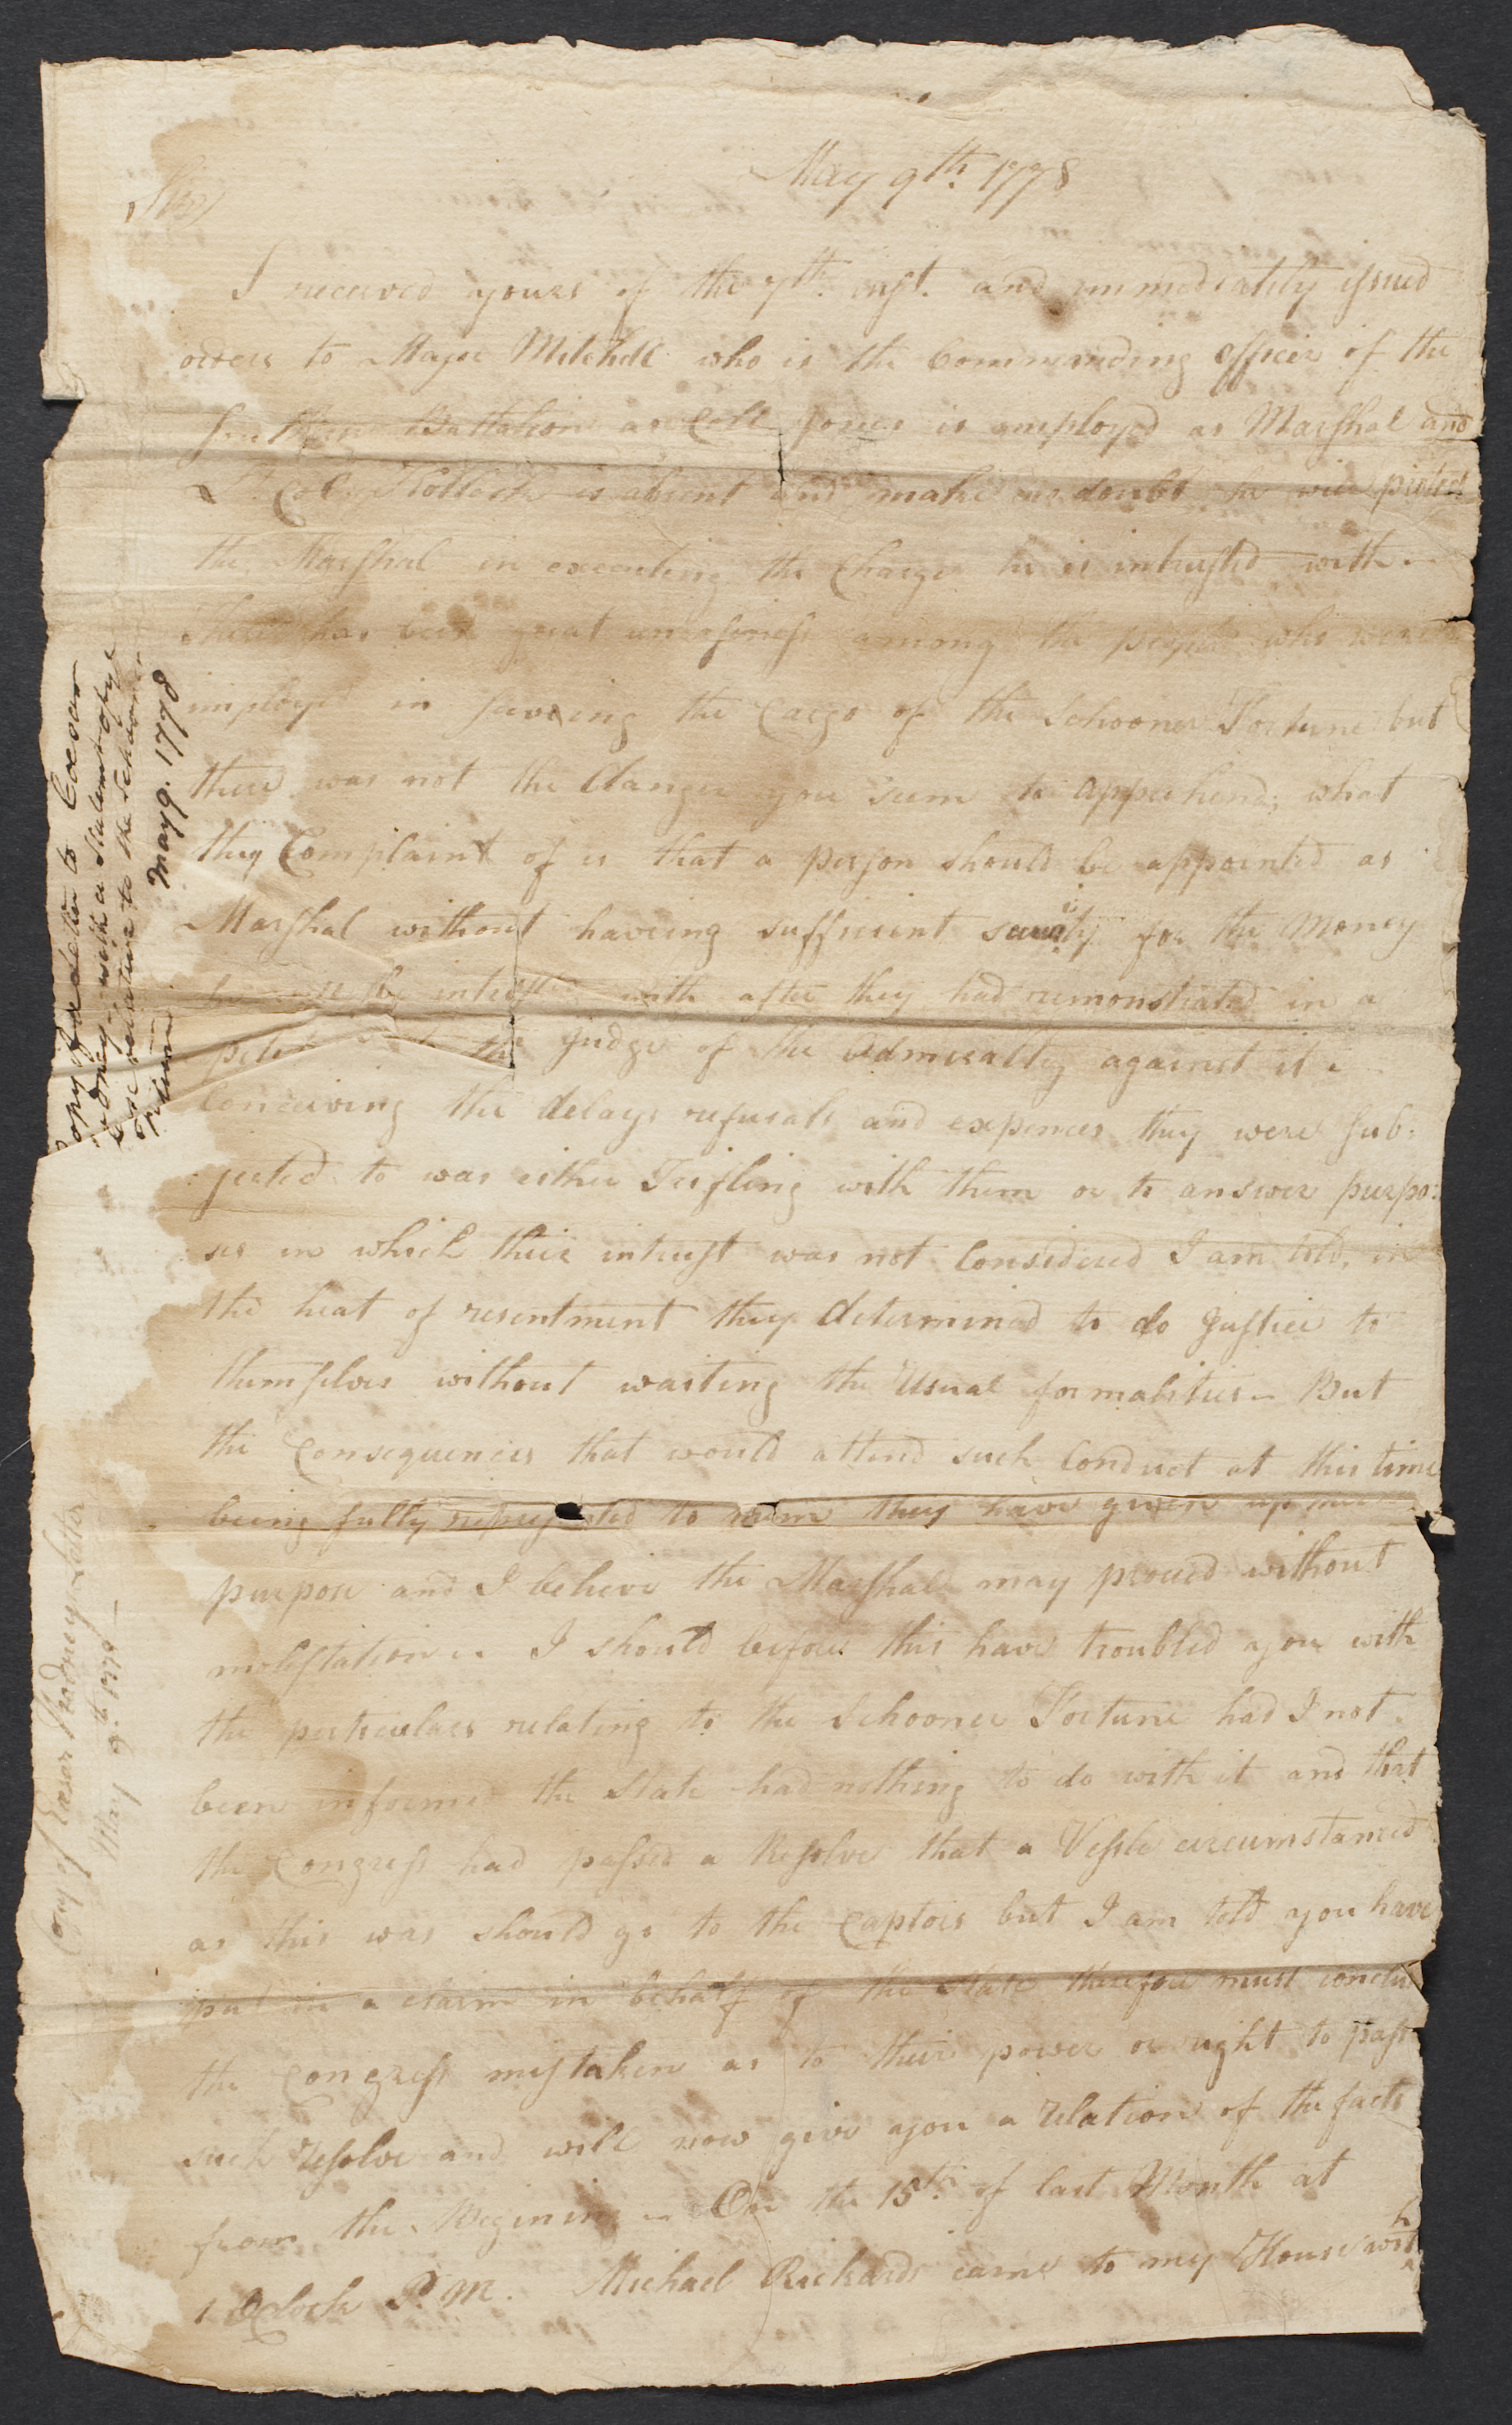 May 9th. 1778
Sir
I received yours of the 7th. inst. and immediately issued
orders to Major Mitchell who is the Commanding officer of the
Battalion as Coll Jones is employd as Marshal and
Lt. Col. Hollock is absent and make no doubt he will protect
the Marshal in executing the Charge he is intrusted with.
There has been great uneasiness among the people who were
imployd in saveing the Cargo of the Schooner Fortune but
there was not the danger you seem to apprehend; what
they Complaint of is that a person should be appointed as
Marshal without haveing sufficient security for the Money
with after they had remonstrated in a
the Judge of the Admiralty against it.
Conceiving the delays refusals and expences they were sub:
jected to was either Trifling with them or to answer purpo:
ses in which their intrust was not Considered I am told, in
the heat of resentment they determined to do Justice to
themselves without waiting the Usual formalities - But
the Consequences that would attend such Conduct at this time
being fully represented to them they have given up
purpose and I believe the Marshal may proceed without
molestation.. I should before this have troubled you with
the perticulars relating to the Schooner Fortune had I not
been informed the State had nothing to do with it and that
the Congress had passed a Resolve that a Vessle circumstanced
as this was should go to the Captors but I am told you have
put in a claim in behalf of the State therefore must conclu
the Congress mistaken as to their power or right to pass
such resolve and will now give you a relation of the facts
from the Begining - On the 15th. of last Month at
1 OClock P.M. Michael Rickards came to my House with
Copy of a letter to Coesar
Rodney with a statement of ye
relative to the schooner
May 9. 1778
Copy of Cæsar Rodney Letter
May 9th 1778 -